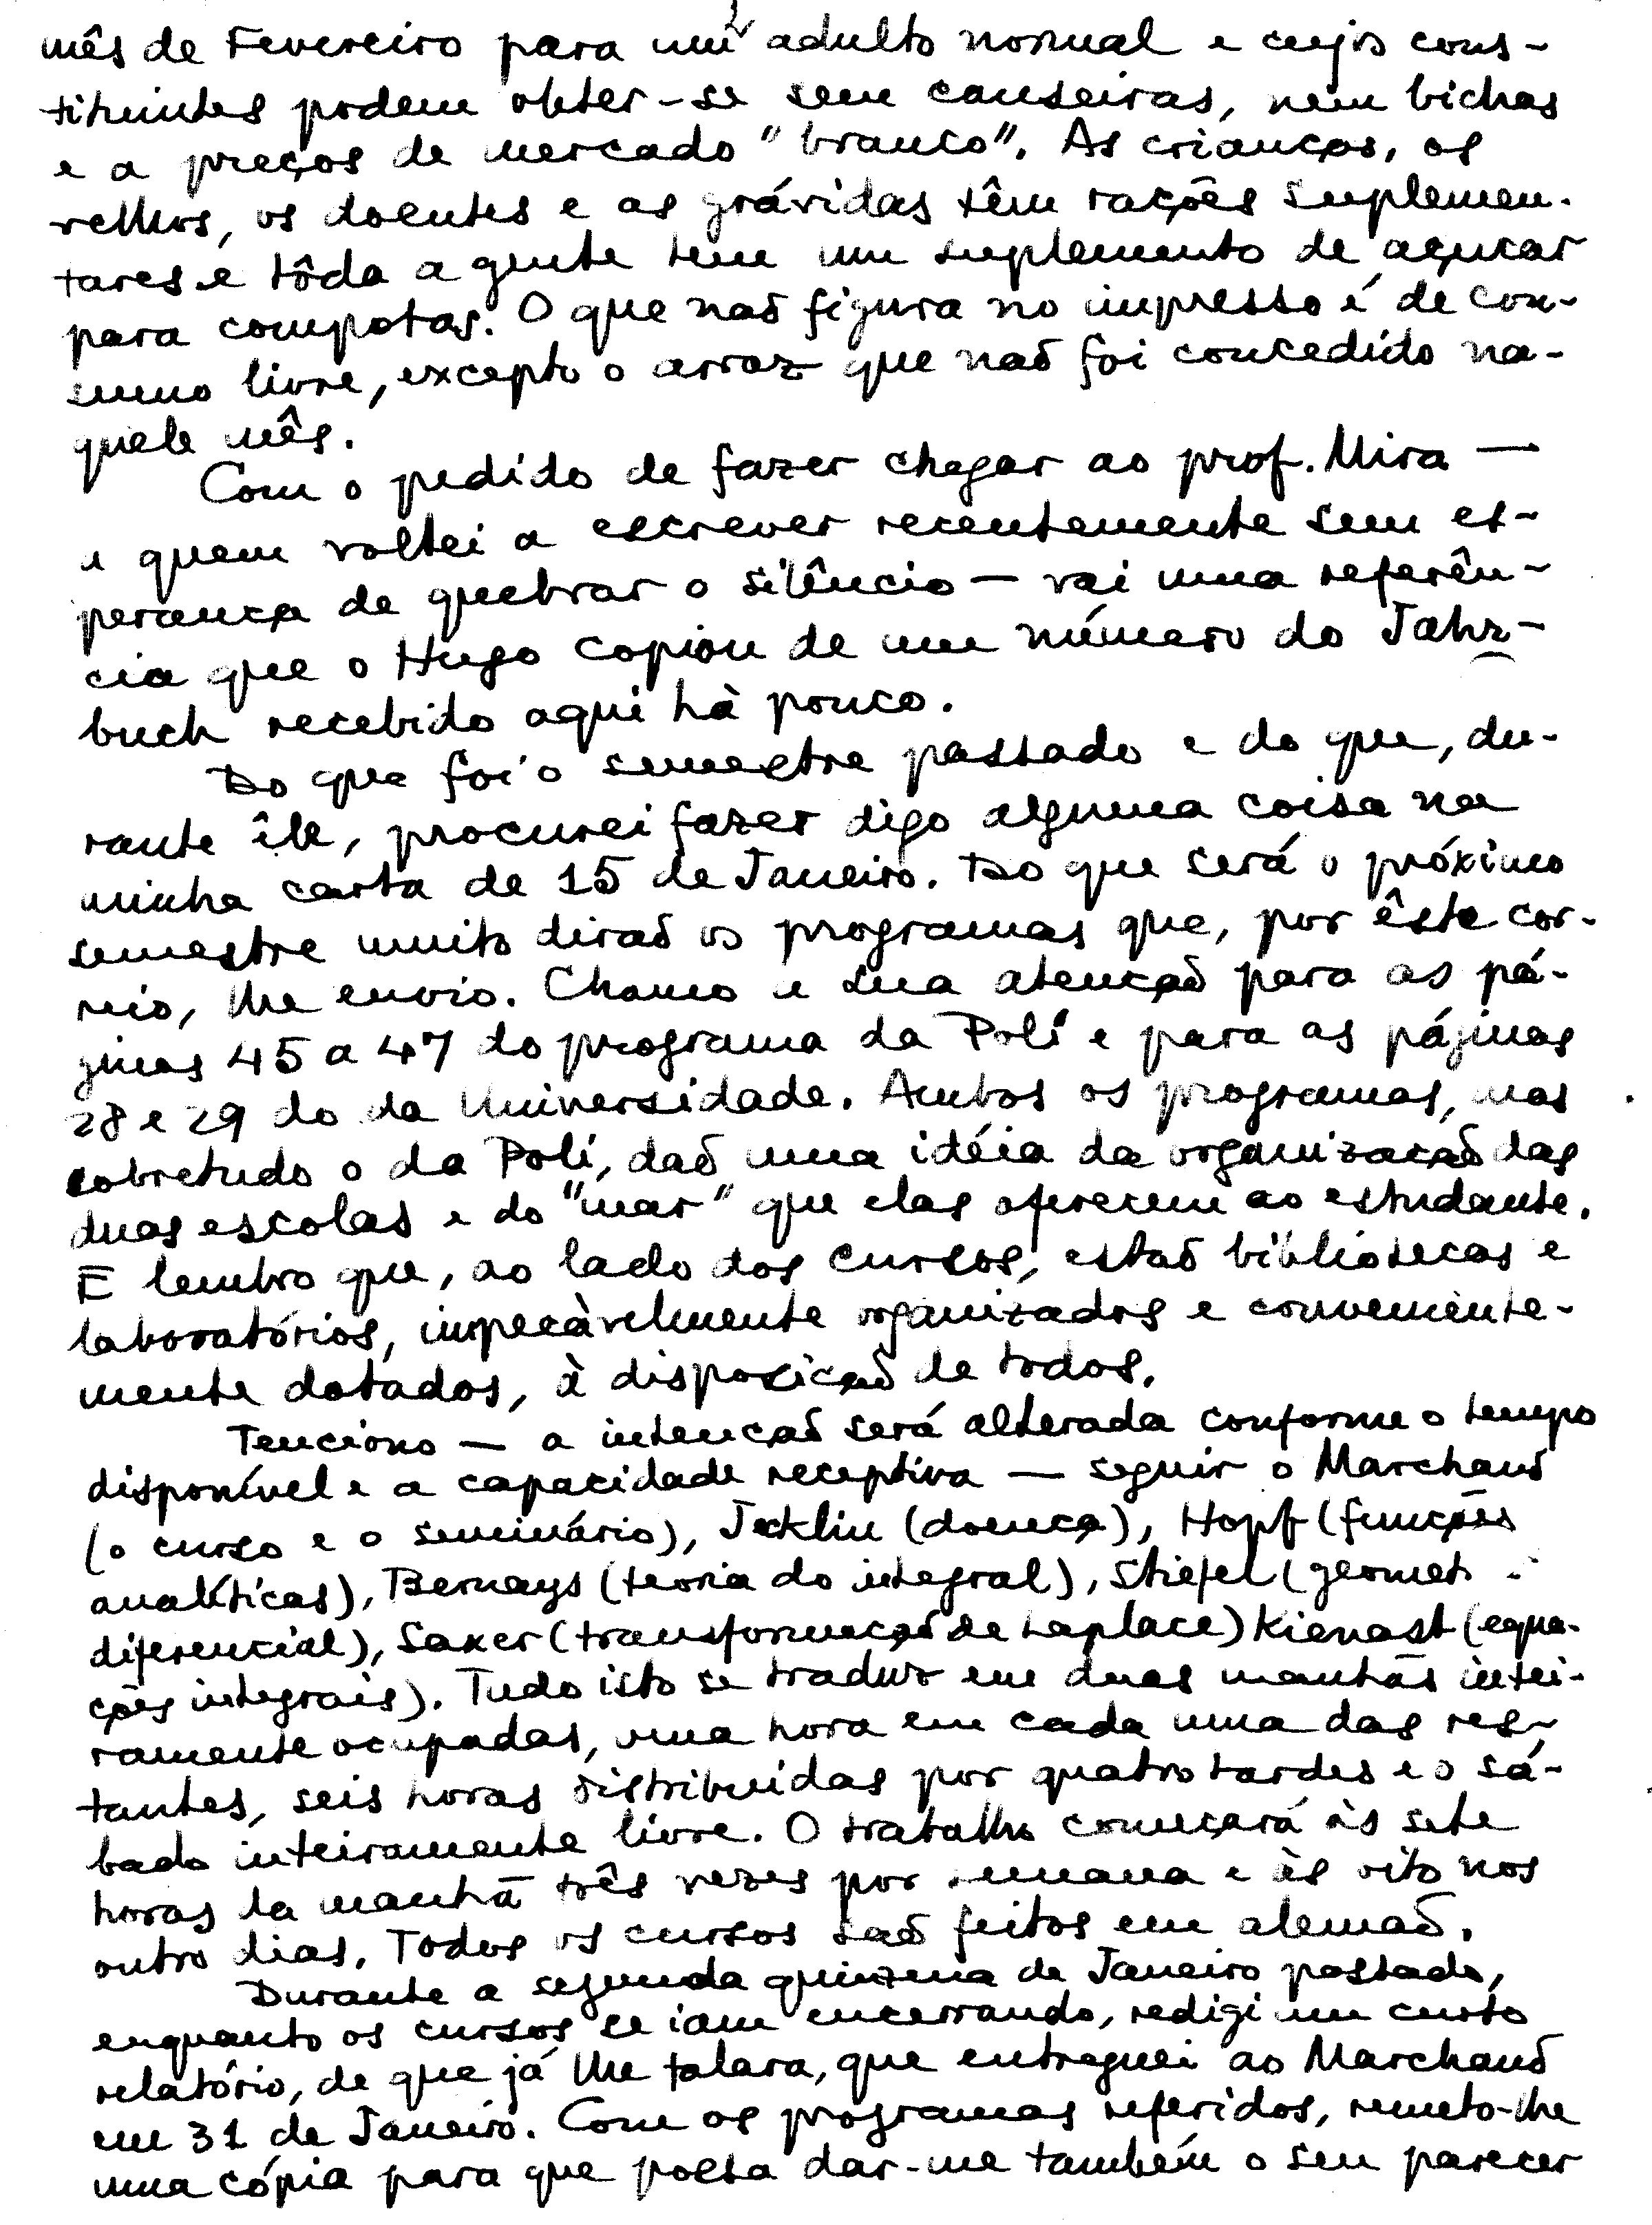 mês de Fevereiro para um adulto normal e cujos cons-
tituintes podem obter-se sem canseiras, nem bichas
e a preços de mercado "branco". As crianças, os
velhos, os doentes e as grávidas têm rações suplemen-
tares e tôda a gente tem um suplemento de açucar
para compotas. O que naõ figura no impresso é de con-
sumo livre, excepto o arroz que naõ foi concedido na-
quele mês.
Com o pedido de fazer chegar ao prof. Mira —
a quem voltei a escrever recentemente sem es-
perança de quebrar o silêncio — vai uma referên-
cia que o Hugo copiou de um número do Jahr-
buch recebido aqui hà pouco.
Do que foi o semestre passado e do que, du-
rante êle, procurei fazer digo alguma coisa na
minha carta de 15 de Janeiro. Do que será o próximo
semestre muito diraõ os programas que, por êste cor-
reio, lhe envio. Chamo a sua atençaõ para as pá-
ginas 45 a 47 do programa da Poli e para as páginas
28 e 29 do da Universidade. Ambos os programas, mas
sobretudo o da Poli, daõ uma idéia da organizaçaõ das
duas escolas e do "mar" que elas oferecem ao estudante.
E lembro que, ao lado dos cursos, estaõ bibliotecas e
laboratórios, impecàvelmente organizados e conveniente-
mente dotados, à disposiçaõ de todos.
Tenciono — a intençaõ será alterada conforme o tempo
disponível e a capacidade receptiva — seguir o Marchand
(o curso e o seminário), Jecklin (doença), Hopf (funções
analíticas), Bernays (teoria do integral), Stiefel (geomet
diferencial), Saxer (transformaçaõ de Laplace) Kienast (equa-
ções integrais). Tudo isto se traduz em duas manhãs intei-
ramente ocupadas, uma hora em cada uma das res-
tantes, seis horas distribuídas por quatro tardes e o sá-
bado inteiramente livre. O trabalho começará às sete
horas da manhã três vezes por semana e às oito nos
outro dias. Todos os cursos saõ feitos em alemaõ.
Durante a segunda quinzena de Janeiro passado,
enquanto os cursos se iam encerrando, redigi um curto
relatório, de que já lhe falara, que entreguei ao Marchand
em 31 de Janeiro. Com os programas referidos, remeto-lhe
uma cópia para que possa dar-me também o seu parecer